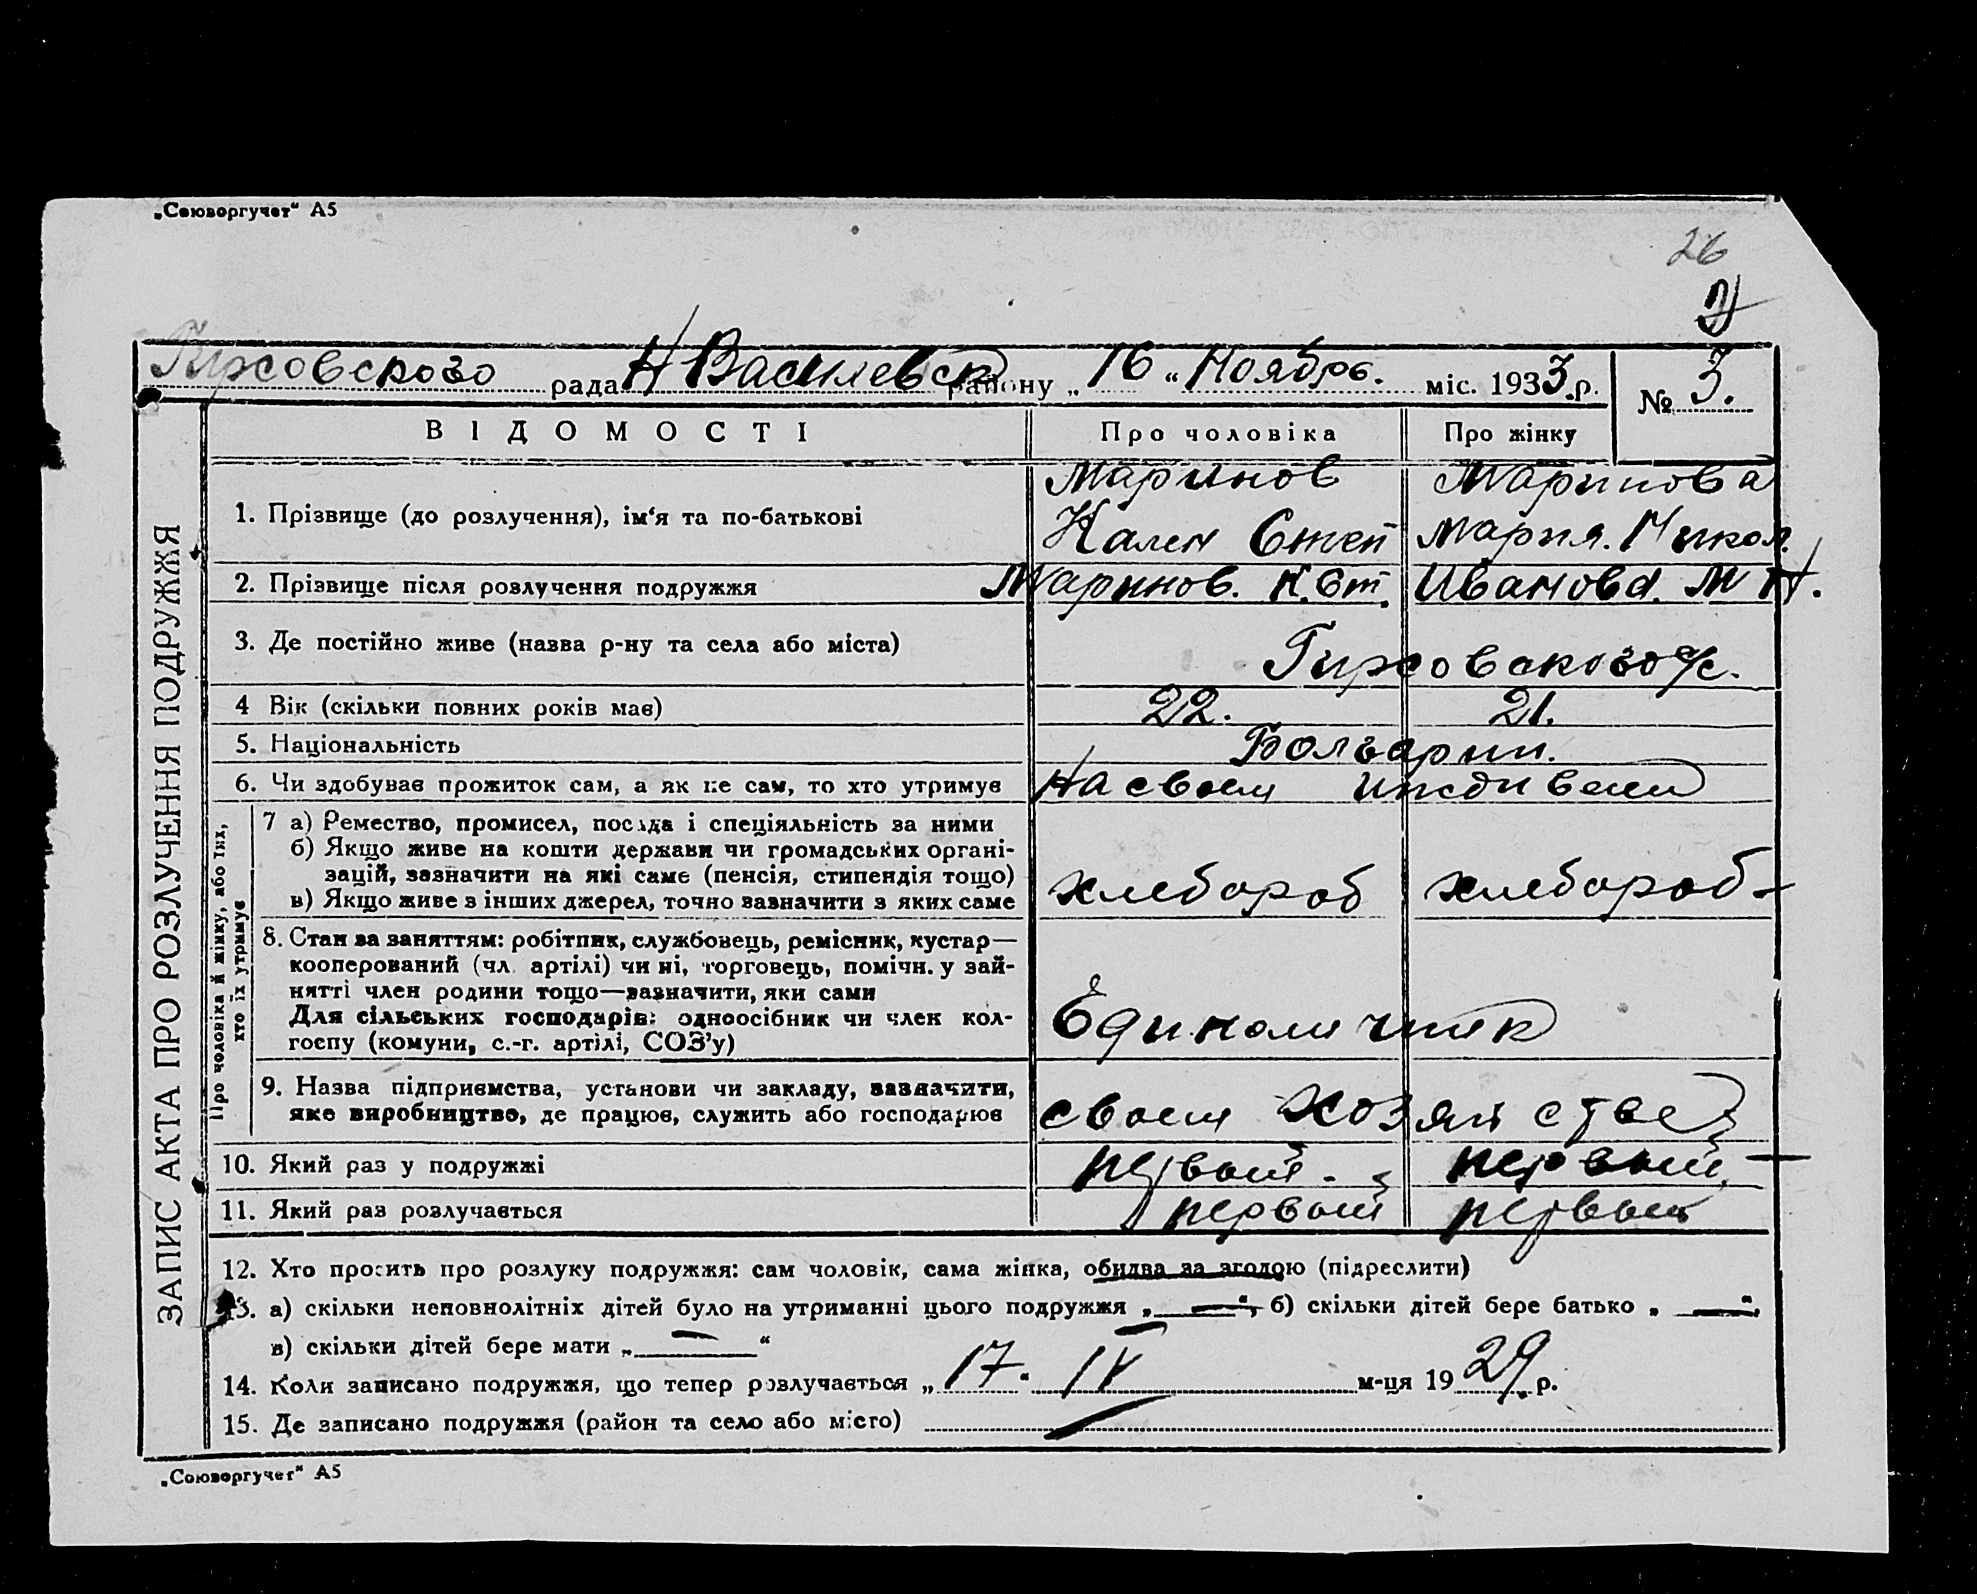 „Союзоргучет“ А5
26
Гирсовского рада Н Василевск району „ 16 “ Ноябрь. міс. 1933.р.
№ 3.
ЗАПИС АКТА ПРО РОЗЛУЧЕННЯ ПОДРУЖЖЯ
ВІДОМОСТІ
Про чоловіка
Про жінку
1. Прізвище (до розлучення), ім‘я та по-батькові
Маринов
Кален Степ
Маринова
Мария. Никол.
2. Прізвище після розлучення подружжя
Маринов. К. Ст.
Иванова. М Н.
3. Де постійно живе (назва р-ну та села або міста)
Гирсовского с/с.
4 Вік (скільки повних років має)
22.
21.
5. Національність
Болгарин.
6. Чи здобував прожиток сам, а як не сам, то хто утримує
На своем иждивени
Про чоловіка й жінку, або їх,
хто їх утримує
7 а) Ремество, промисел, посада і спеціяльність за ними
б) Якщо живе на кошти держави чи громадських органі-
зацій, зазначити на які саме (пенсія, стипендія тощо)
в) Якщо живе з інших джерел, точно зазначити з яких саме
хлебороб
хлебороб
8. Стан за заняттям: робітник, службовець, ремісник, кустар—
кооперований (чл. артілі) чи ні, торговець, помічн. у зай-
нятті член родини тощо—зазначити, яки сами
Для сільських господарів: одноосібник чи член кол-
госпу (комуни, с.-г. артілі, СОЗ’у)
Единоличник
9. Назва підприємства, установи чи закладу, зазначити,
яке виробництво, де працює, служить або господарює
своем хозяйстве
10. Який раз у подружжі
первый.
первый
11. Який раз розлучається
первый
первый
12. Хто просить про розлуку подружжя: сам чоловік, сама жінка, обидва за згодою (підреслити)
13. а) скільки неповнолітніх дітей було на утриманні цього подружжя „ — “, б) скільки дітей бере батько „ — “,
в) скільки дітей бере мати „ — “
14. Коли записано подружжя, що тепер розлучається „ 17 “ IV м-ця 1929 р.
15. Де записано подружжя (район та село або місто)
„Союзоргучет“ А5